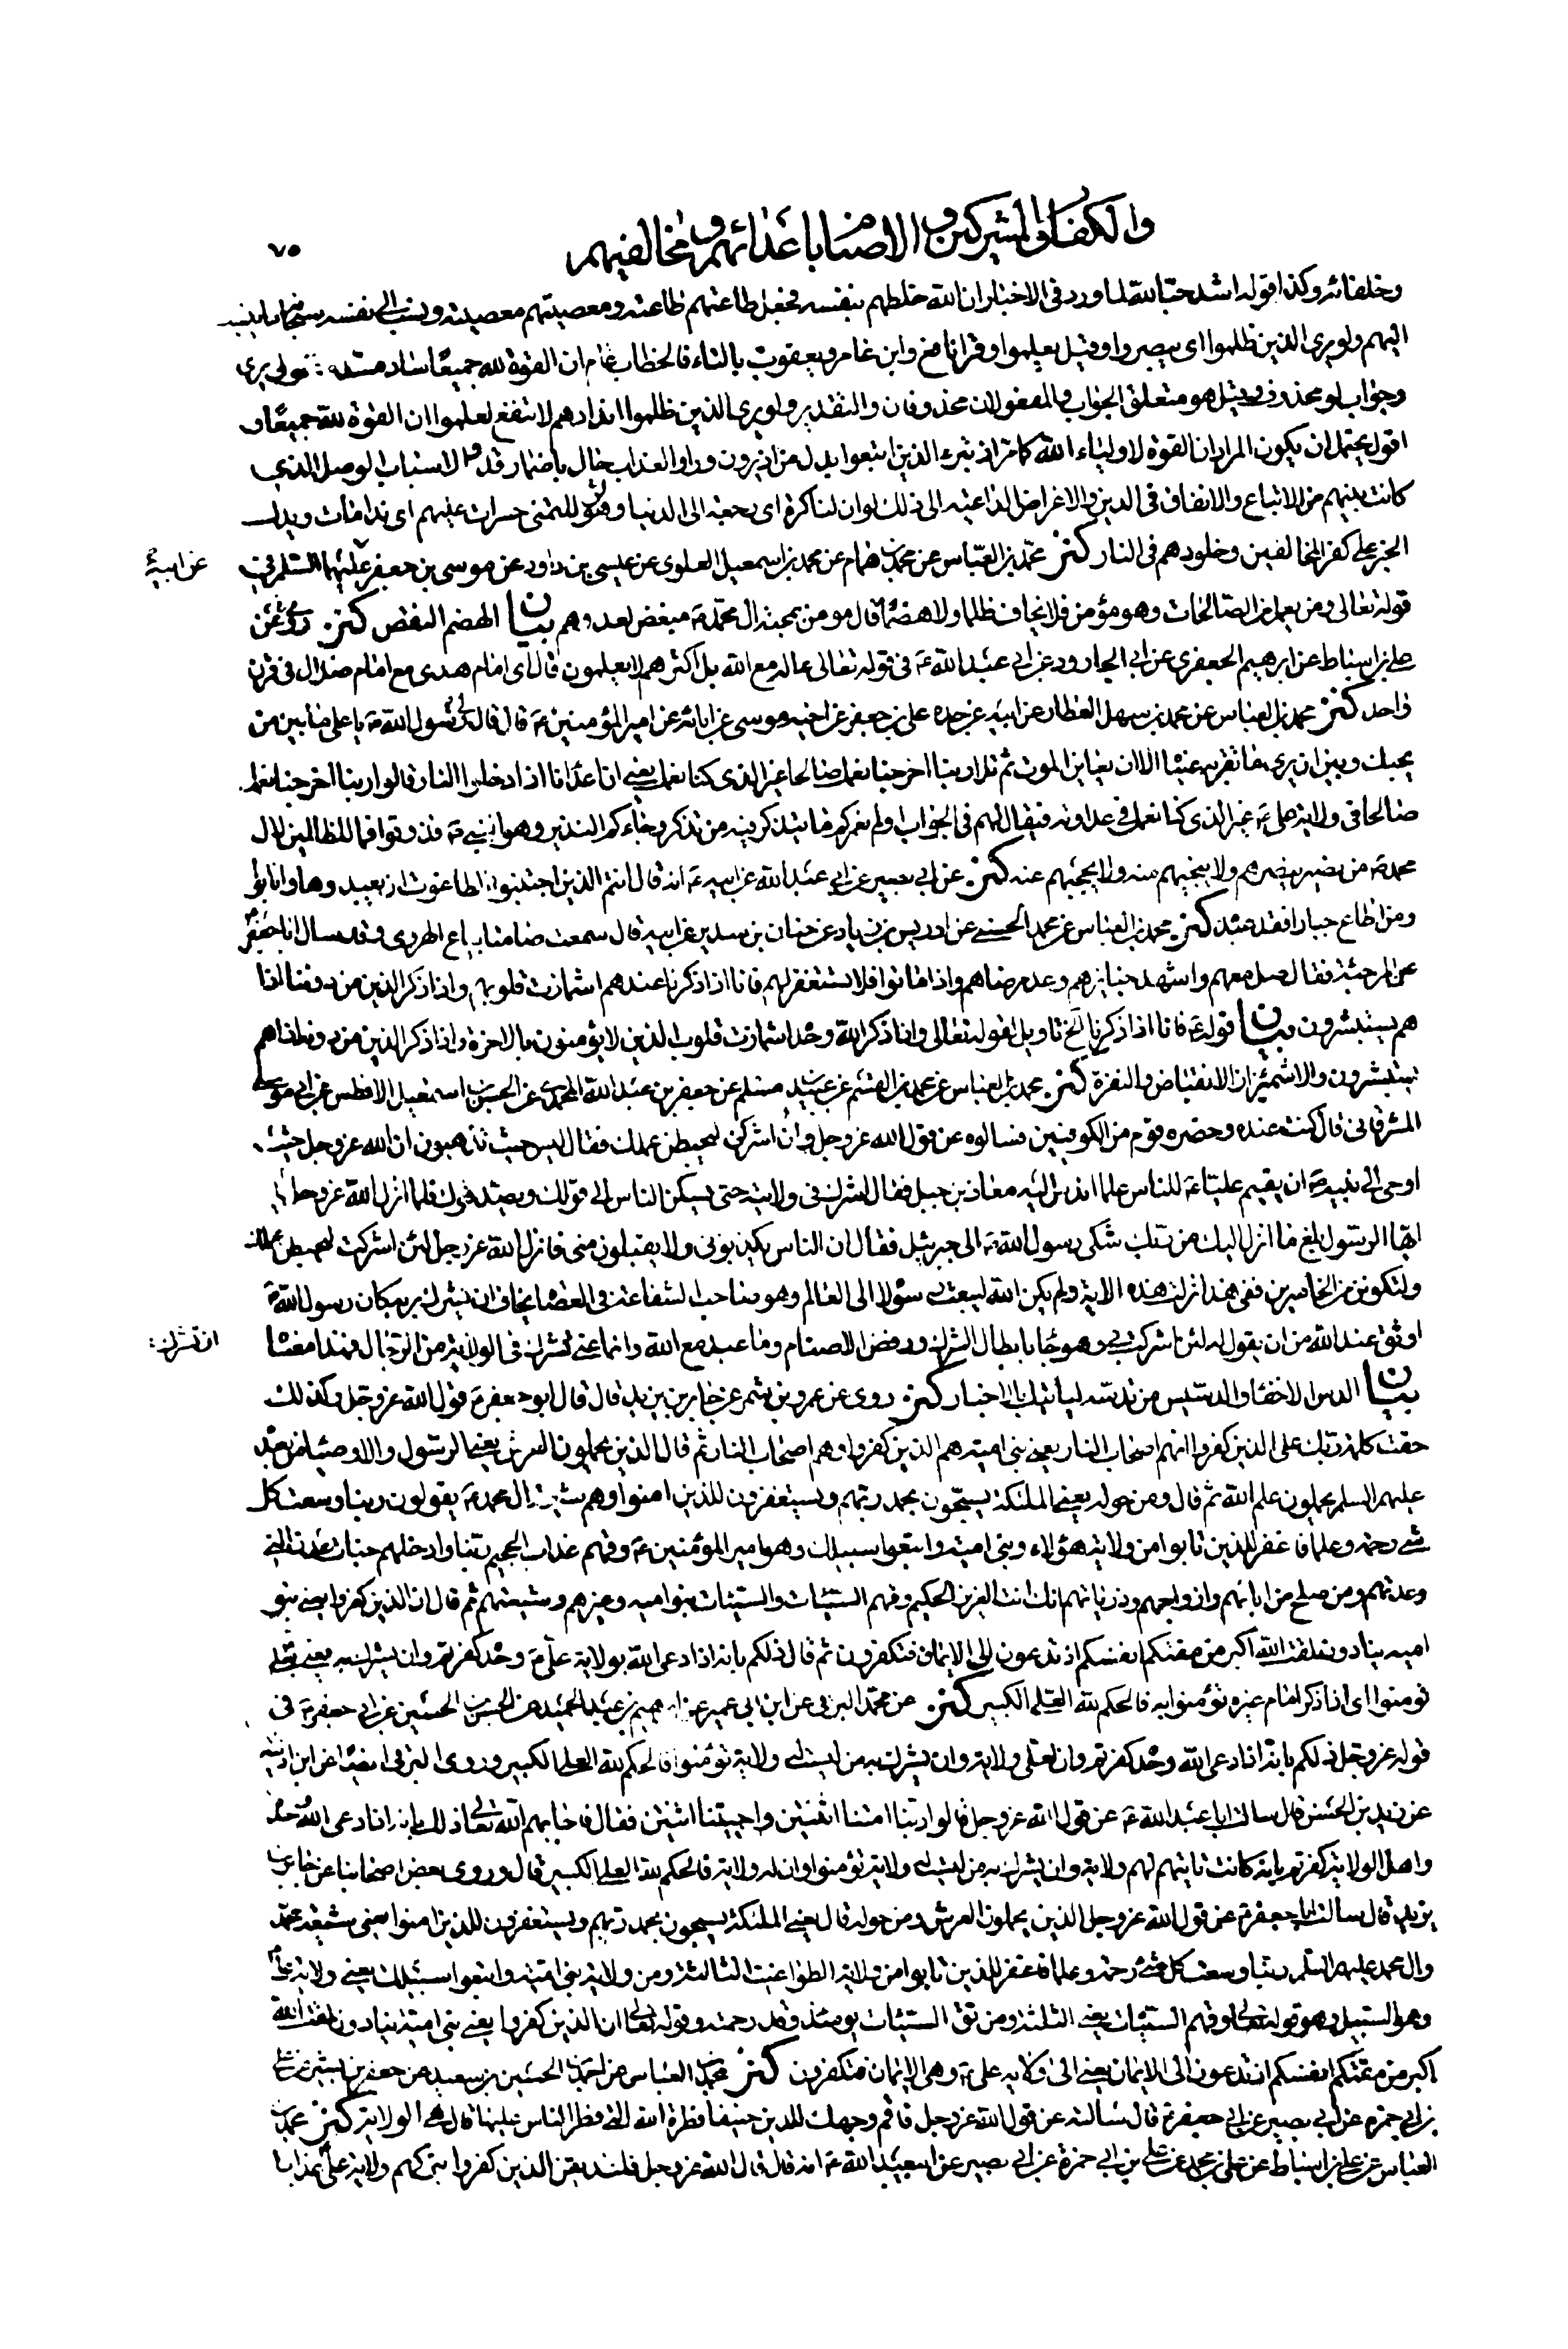 والكفار والمشركين و الاصنام باعدائهم و مخالفيهم
٧٥
وخلفائه وكذا قوله اشد حبا لله لما ورد في الاخبار ان الله خلطهم بنفسه فجعل طاعتهم طاعته ومعصيتهم معصيته ونسب الى نفسه سبحانه ما ينسب
اليهم ولو يرى الذين ظلموا اى يبصروا وقيل يعلموا وقرأ نافع وابن عامر ويعقوب بالتاء فالخطاب عام ان القوة لله جميعا ساد مسد مفعولى يرى
وجواب لو محذوف وقيل هو متعلق الجواب والمفعولان محذوفان والتقدير ولو يرى الذين ظلموا اندادهم لا تنفع لعلموا ان القوة لله جميعا و
اقول يحتمل ان يكون المراد ان القوة لاولياء الله كما مر اذ تبرء الذين اتبعوا بدل من اذ يرون وراوا العذاب حال باضمار قد والاسباب الوصل الذي
كانت بينهم من الاتباع والاتفاق في الدين والاغراض الداعية الى ذلك لو ان لنا كرة اى رجعة الى الدنيا ولو للتمني حسرات عليهم اى ندامات ويدل
الخبر على كفر المخالفين وخلودهم في النار كنز محمد بن العباس عن محمد بن همام عن محمد بن اسمعيل العلوى عن عيسى بن داود عن موسى بن جعفر عليهما السلم في
عن ابيه
قوله تعالى ومن يعمل من الصالحات وهو مؤمن فلا يخاف ظلما ولا هضما قال مومن بمحبة ال محمد ص مبغض لعدوهم بيان الهضم النقص كنز روى عن
على بن اسباط عن ابرهيم الجعفرى عن ابى الجارود عن ابى عبد الله ع في قوله تعالى ءاله مع الله بل اكثرهم لا يعلمون قال اى امام هدى مع امام ضلال في قرن
واحد كنز محمد بن العباس عن محمد بن سهل العطار عن ابيه عن جده على بن جعفر عن اخيه موسى عن ابائه عن امير المؤمنين ع قال قال لى رسول الله ص يا على ما بين من
يحبك وبين ان يرى ما تقر به عيناه الا ان يعاين الموت ثم تلا ربنا اخرجنا نعمل صالحا غير الذى كنا نعمل يعنى ان اعدائنا اذا دخلوا النار قالوا ربنا اخرجنا نعمل
صالحا في ولاية على ع غير الذى كنا نعمل في عداوته فيقال لهم في الجواب اولم نعمركم ما يتذكر فيه من تذكر وجاءكم النذير وهو النبي ص فذوقوا فما للظالمين لال
محمد ص من نصير ينصرهم ولا ينجيهم منه ولا يحجبهم عنه كنز عن ابى بصير عن ابى عبد الله عن ابيه ع انه قال انتم الذين اجتنبوا الطاغوت ان يعبدوها وانابوا
ومن اطاع جبارا فقد عبده كنز محمد بن العباس عن محمد الحسنى عن ادريس بن زياد عن حنان بن سدير عن ابيه قال سمعت صامتا بياع الهروى وقد سال ابا جعفر ع
عن المرجئة فقال صل معهم واشهد جنايزهم وعد مرضاهم واذا ماتوا فلا تستغفر لهم فانا اذا ذكرنا عندهم اشمازت قلوبهم واذا ذكر الذين من دوننا اذا
هم يستبشرون بيان قوله ع فانا اذا ذكرنا الخ تاويل لقوله تعالى واذا ذكر الله وحده اشمازت قلوب الذين لا يؤمنون بالاخرة واذا ذكر الذين من دونه اذا هم
يستبشرون والاشمئزاز الانقباض والنفرة كنز محمد بن العباس عن محمد بن القسم عن عبيد بن مسلم عن جعفر بن عبد الله المحمدى عن الحسن بن اسمعيل الافطس عن ابى موسى
المشرقانى قال كنت عنده وحضره قوم من الكوفيين فسالوه عن قول الله عز وجل لئن اشركت ليحبطن عملك فقال ليس حيث تذهبون ان الله عز وجل حيث
اوحى الى نبيه ص ان يقيم عليا ع للناس علما اندس اليه معاذ بن جبل فقال اشرك في ولايته حتى يسكن الناس الى قولك ويصدقوك فلما انزل الله عز وجل يا
ايها الرسول بلغ ما انزل اليك من ربك شكى رسول الله ص الى جبرئيل فقال ان الناس يكذبونى ولا يقبلون منى فانزل الله عز وجل لئن اشركت ليحبطن عملك
ولتكونن من الخاسرين ففي هذا نزلت هذه الاية ولم يكن الله ليبعث رسولا الى العالم وهو صاحب الشفاعة في العصاة يخاف ان يشرك بربه كان رسول الله ص
اوثق عند الله من ان يقول له لئن اشركت بى وهو جاء بابطال الشرك ورفض الاصنام وما عبد مع الله وانما عنى تشرك في الولاية من الرجال فهذا معناه
ان تشرك
بيان الدس الاخفاء والدسيس من تدسه لياتيك بالاخبار كنز روى عن عمرو بن شمر عن جابر بن يزيد قال قال ابو جعفر ع قول الله عز وجل وكذلك
حقت كلمة ربك على الذين كفروا انهم اصحاب النار يعنى بنى امية هم الذين كفروا وهم اصحاب النار ثم قال الذين يحملون العرش يعنى الرسول والاوصياء من بعده
عليهم السلم يحملون علم الله ثم قال ومن حوله يعنى الملئكة يسبحون بحمد ربهم ويستغفرون للذين امنوا وهم شيعة ال محمد ص يقولون ربنا وسعت كل
شئ رحمة وعلما فاغفر للذين تابوا من ولاية هؤلاء وبنى امية واتبعوا سبيلك وهو امير المؤمنين ع وقهم عذاب الجحيم ربنا وادخلهم جنات عدن التى
وعدتهم ومن صلح من ابائهم وازواجهم وذرياتهم انك انت العزيز الحكيم وقهم السيئات والسيئات بنو امية وغيرهم وشيعتهم ثم قال ان الذين كفروا يعنى بنو
امية ينادون لمقت الله اكبر من مقتكم انفسكم اذ تدعون الى الايمان فتكفرون ثم قال ذلكم بانه اذا دعى الله بولاية على ع وحده كفرتم وان يشرك به يعنى بعلى
تؤمنوا اى اذا ذكر امام غيره تؤمنوا به فالحكم لله العلى الكبير كنز عن محمد البرقى عن ابن ابى عمير عن ابرهيم بن عبد الحميد عن الحسن بن الحسين عن ابى جعفر ع في
قوله عز وجل ذلكم بانه اذا دعى الله وحده كفرتم وان لعلى ولاية وان يشرك به من ليست له ولاية تؤمنوا فالحكم لله العلى الكبير وروى البرقى ايضا عن ابن اذينه
عن زيد بن الحسن قال سالت ابا عبد الله ع عن قول الله عز وجل قالوا ربنا امتنا اثنتين واحييتنا اثنتين فقال فاجابهم الله تعالى ذلكم بانه اذا دعى الله وحده
واهل الولاية كفرتم بانه كانت ثابتهم لهم ولاية وان يشرك به من ليست له ولاية تؤمنوا وان له ولاية فالحكم لله العلى الكبير قال وروى بعض اصحابنا عن جابر بن
يزيد قال سالت ابا جعفر ع عن قول الله عز وجل الذين يحملون العرش ومن حوله قال يعنى الملئكة يسبحون بحمد ربهم ويستغفرون للذين امنوا يعنى شيعة محمد
وال محمد عليهم السلم ربنا وسعت كل شئ رحمة وعلما فاغفر للذين تابوا من ولاية الطواغيت الثلثة ومن ولاية بنى امية واتبعوا سبيلك يعنى ولاية على ع
وهو السبيل وهو قوله تعالى وقهم السيئات يعنى الثلثة ومن تق السيئات يومئذ فقد رحمته وقوله تعالى ان الذين كفروا يعنى بنى امية ينادون لمقت الله
اكبر من مقتكم انفسكم اذ تدعون الى الايمان يعنى الى ولاية على ع وهى الايمان فتكفرون كنز محمد بن العباس عن احمد بن الحسين بن سعيد عن جعفر بن بشير عن على
بن ابى حمزة عن ابى بصير عن ابى جعفر ع قال سالته عن قول الله عز وجل فاقم وجهك للدين حنيفا فطرة الله التى فطر الناس عليها قال هى الولاية كنز محمد بن
العباس عن على بن اسباط عن على بن محمد عن على بن ابى حمزة عن ابى بصير عن ابيعبد الله ع انه قال قال الله عز وجل فلنذيقن الذين كفروا بتركهم ولاية على ع عذابا